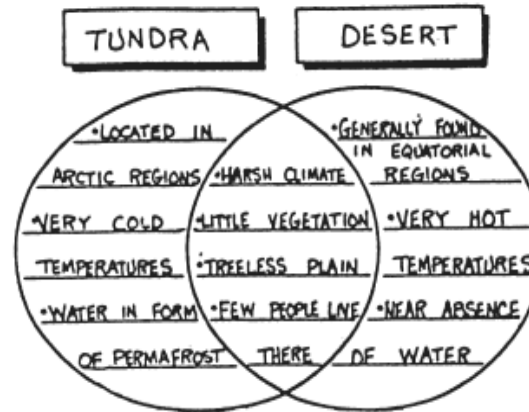 TUNDRA
DESERT
•LOCATED IN
ARCTIC REGIONS
•VERY COLD
TEMPERATURES
•WATER IN FORM
OF PERMAFROST
•HARSH CLIMATE
•LITTLE VEGETATION
•TREELESS PLAIN
•FEW PEOPLE LIVE
THERE
•GENERALLY FOUND
IN EQUATORIAL
REGIONS
•VERY HOT
TEMPERATURES
•NEAR ABSENCE
OF WATER